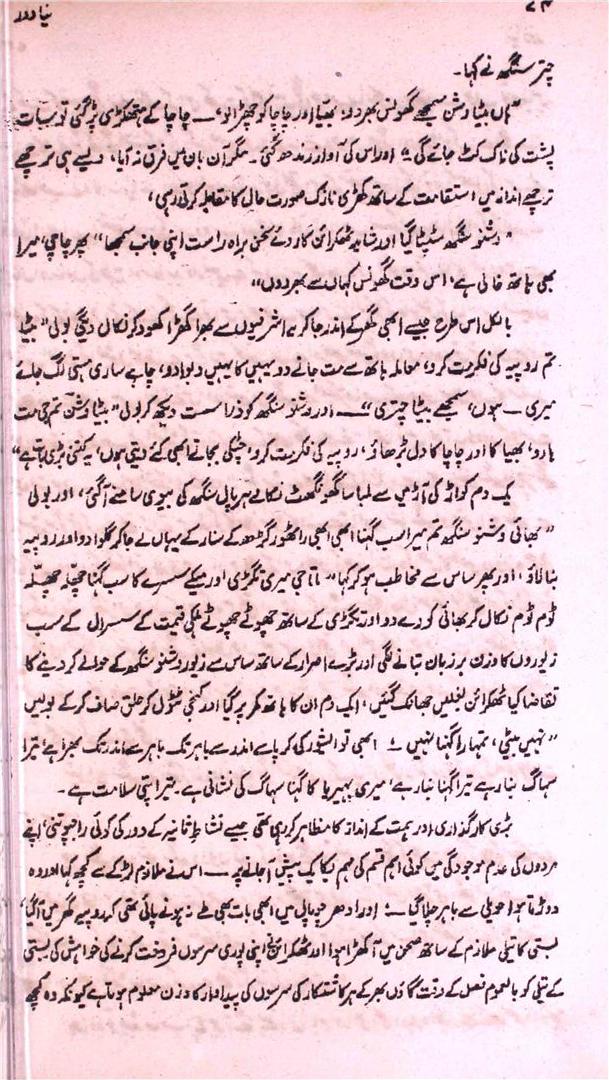 نیا دور
۷۴
چتر سنگھ نے کہا۔
"ہاں بیٹا وشن سمجھے گھونس بھر دو؛ بھیّا اور چاچا کو چھڑا لو، — چاچا کے ہتھکڑی پڑ گئی تو سات
پشت کی ناک کٹ جائے گی؛ اور اس کی آواز رندھ گئی۔ مگر آن بان میں فرق نہ آیا، ویسے ہی ترچھے
ترچھے انداز میں استقامت کے ساتھ کھڑی نازک صورت حال کا مقابلہ کرتی رہی،
"وشنو سنگھ سٹپٹا گیا اور شاید ٹھکرائن کا روئے سخن براہ راست اپنی جانب سمجھا" پھر چاچی، میرا
بھی ہاتھ خالی ہے، اس وقت گھونس کہاں سے بھر دوں"
بالکل اس طرح جیسے ابھی گھر کے اندر جا کر یہ اشرفیوں سے بھرا گھڑا کھود کر نکال دیگی بولی "بیٹا
تم روپیہ کی فکر مت کرو، معاملہ ہاتھ سے مت جانے دو یہیں کا یہیں دبوا دو، چاہے ساری ہستی لگ جائے
میری — ہوں، سمجھے بیٹا چتری" — اور وشنو سنگھ کو ذرا سست دیکھ کر بولی "بیٹا وشن تم جی مت
ہارو، بھیا کا اور چاچا کا دل بڑھاؤ، روپیہ کی فکر مت کرو، چٹکی بجاتے ابھی لائے دیتی ہوں، یہ کتنی بڑی بات ہے"
یک دم کواڑ کی آڑ میں سے لمبا سا گھونگھٹ نکالے ہرپالی سنگھ کی بیوی سامنے آ گئی، اور بولی
"بھائی وشنو سنگھ تم میرا سب گہنا ابھی ابھی راٹھور گڑھ کے سنار کے یہاں لے جا کر گلوا دو اور روپیہ
بنا لاؤ، اور پھر ساس سے مخاطب ہو کر کہا "ماتا جی میری تگڑی اور میکے سسرے کا سب گہنا چھلّہ چھلّہ
ٹوم ٹوم نکال کر بھائی کو دے دو اور تگڑی کے ساتھ چھوٹے چھوٹے ہلکی قیمت کے سسرال کے سب
زیوروں کا وزن برزبان بتانے لگی اور بڑے اصرار کے ساتھ ساس سے زیور وشنو سنگھ کے حوالے کر دینے کا
تقاضا کیا ٹھکرائن بغلیں جھانک گئیں، ایک دم ان کا ہاتھ کمر پر گیا اور کنجی ٹٹول کر حلق صاف کر کے بولیں
"نہیں بیٹی، تمہارا گہنا نہیں؛ ابھی تو ایشور کی کرپا سے اندر سے باہر تک باہر سے اندر تک بھرا ہے، تیرا
سہاگ نیارا ہے تیرا گہنا نیارا ہے، میری بہیریا کا گہنا سہاگ کی نشانی ہے۔ تیرا پتی سلامت ہے۔
بڑی کارگذاری اور ہمت کے انداز کا مظاہر کر رہی تھی جیسے نشاۃ ثانیہ کے دور کی کوئی راجپوتنی، اپنے
مردوں کی عدم موجودگی میں کوئی اہم قسم کی مہم یکایک پیش آ جانے پر — اس نے ملازم لڑکے سے کچھ کہا اور وہ
دوڑتا ہوا حویلی سے باہر چلا گیا؛ اور ادھر چوپالی میں ابھی بات بھی طے نہ ہونے پائی تھی کہ روپیہ گھر میں آ گیا،
بستی کا تیلی ملازم کے ساتھ صحن میں آ کھڑا ہوا اور ٹھکرائن نے اپنی پوری سرسوں فروخت کرنے کی خواہش کی بستی
کے تیلی کو بالعموم فصل کے وقت گاؤں بھر کے ہر کاشتکار کی سرسوں کی پیداوار کا وزن معلوم ہوتا ہے کیونکہ وہ کچھ